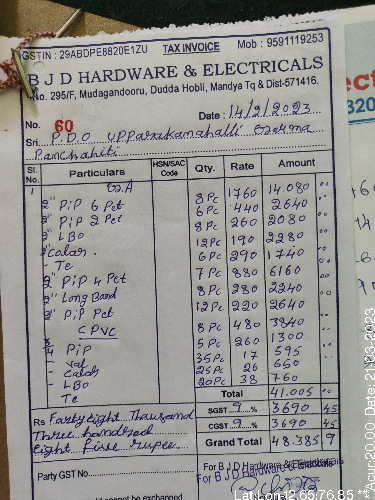 GSTIN : 29ABDPE8820E1ZU TAX INVOICE Mob : 9591119253
B J D HARDWARE & ELECTRICALS
No. 295/F, Mudagandooru, Dudda Hobli, Mandya Tq & Dist-571416.
Date : 14/2/2023
No. 60
Sri P.D.O upparakamahalli
Panchahiti
Sl. No. Particulars HSN/SAC Code Qty. Rate Amount
1
2" PiP 6 Pet 8 Pc 1760 14.080 00
2" PiP 2 Pet 6 Pc 440 2640
" LBo 8 Pc 260 2080
" Colar. 12 Pc 190 2280
- Te 6 Pc 290 1740
2" PiP 4 Pet 7 Pc 880 6160
" Long Band 8 Pc 280 2240
2" PiP Pet 12 Pc 220 2640
CPVC
PiP 8 Pc 480 3840
- Val 5 Pc 260 1300
- Calar 35 Pc 17 595
- LBo 25 Pc 26 650
Te 20 Pc 38 760
Total 41.005
Rs Farty eight Thausand SGST 9 % 3690 45
Three handred CGST 9 % 3690 45
eight five rupee. Grand Total 48.385 9
Party GST No. For B J D Hardware & Electricals
For B J D Hardware & Electricals
cannot be exchanged
Lat:Lon:12.65:76.85
Date: 21-03-2023